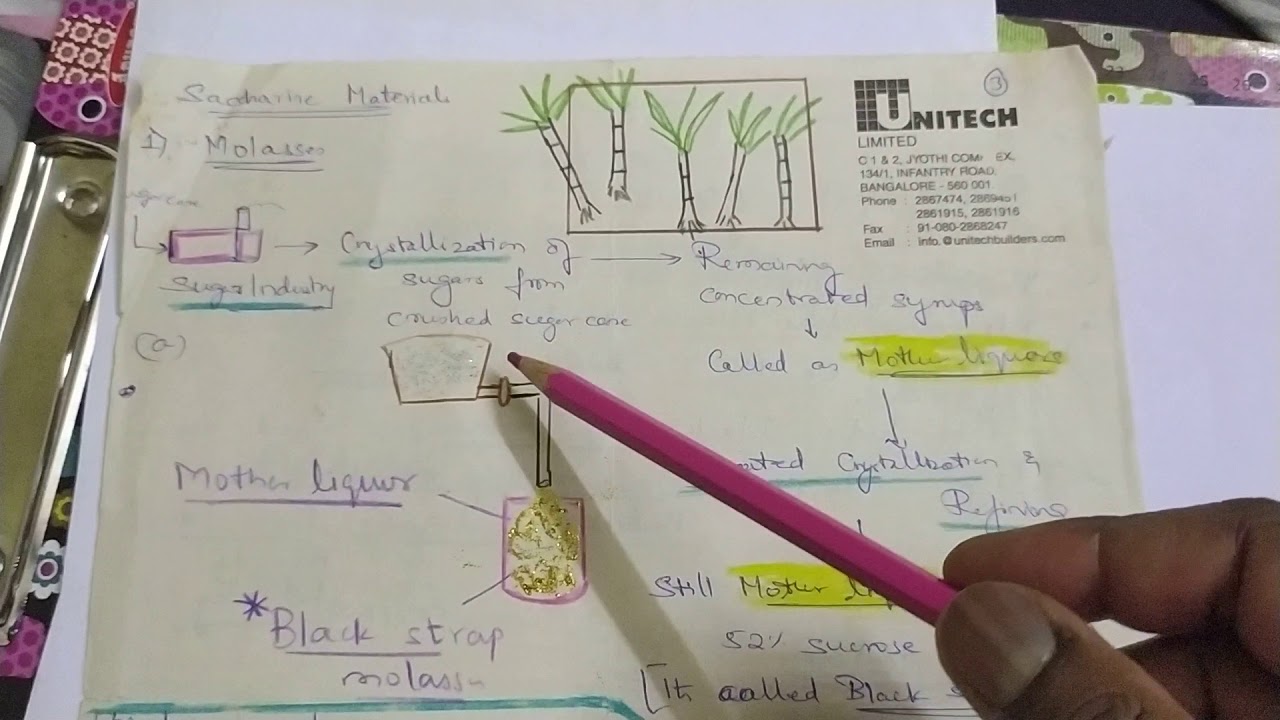 Saccharine Materials
3
UNITECH
LIMITED
C 1 & 2, JYOTHI COM EX,
134/1, INFANTRY ROAD,
BANGALORE - 560 001.
Phone : 2867474, 286945
2861915, 2861916
Fax : 91-080-2868247
Email : info.@unitechbuilders.com
1) Molasses
Sugar Industry
Crystallization of
sugars from
crushed sugar cane
Remaining
concentrated syrups
Called as Mother liquors
(a)
Crystallization &
Refining
Mother liquor
Still Mother
52% sucrose
[It called Black
*Black strap
molass